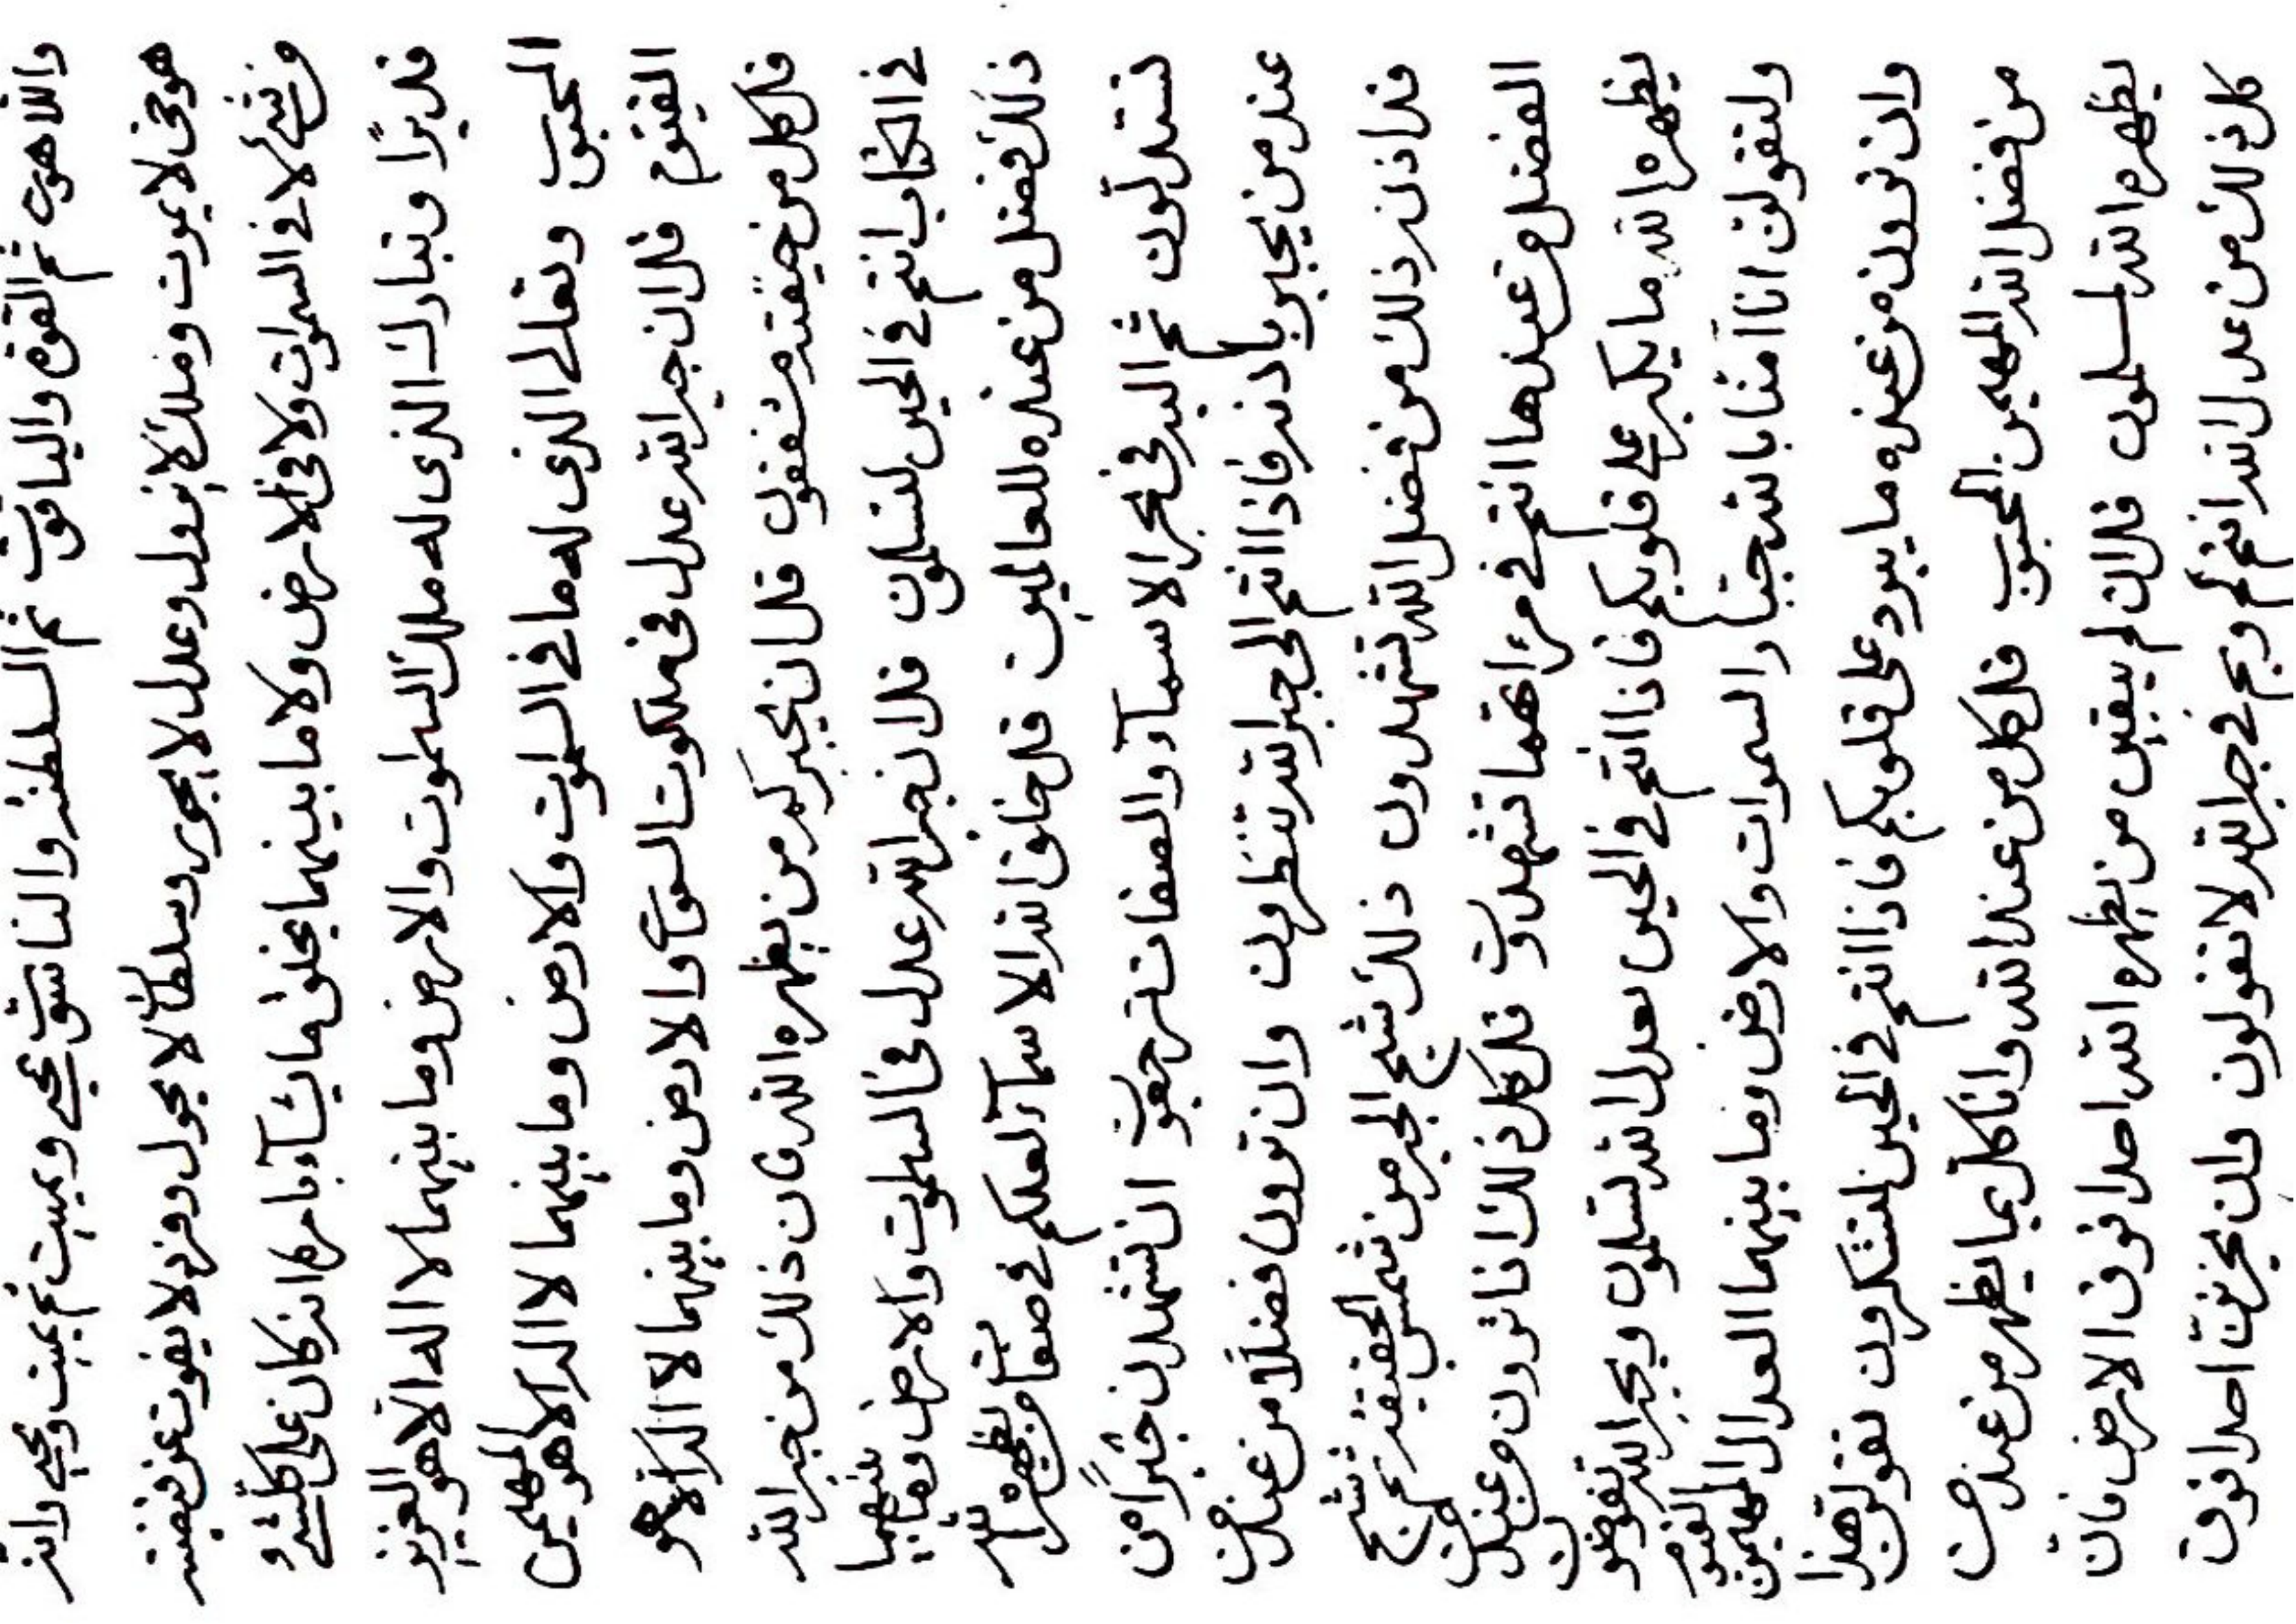 واللاهوت ثم القوة والياقوت ثم السلطنة والناسوت يحيي ويميت ثم يميت ويحيي وانه
هو حي لا يموت وملك لا يزول وعدل لا يجور وسلطان لا يحول وفرد لا يفوت عن قبضته
من شيء لا في السموات ولا في الارض ولا ما بينهما يخلق ما يشآء بامره انه كان على كلشيء
قديرًا وتبارك الذي له ملك السموت والارض وما بينهما لا اله الا هو العزيز
المحبوب وتعالى الذي له ما في السموت والارض وما بينهما لا اله الا هو المهيمن
القيوم قل ان جبر الله عدل في ملكوت السموات والارض وما بينهما لا اله الا هو
قل كل من خيفته مشفقون قل ان يجبركم من يظهره الله فان ذلك من جبر الله
في الكتاب انتم في الحين لتسلمون قل ان جبر الله عدل في السموت والارض وما بينهما
ذلك فضل من عنده للعالمين قل خلق الله الاسمآء لعلكم في من يظهره الله
تستدلون ثم اليه في بحر الاسمآء والصفات ترجعون ان تشهدن جبرًا من
عند من يجبر باذنه فاذا انتم الى جبر الله تنظرون وان ترون فضلًا من عند من
ذلك من فضل الله تشهدون ذلك شبح الجبر من شمس الحقيقة ثم شبح
الفضل من عندها انتم في مراتهما تشهدون قل كل ذلك اذا ترون من عند من
يظهره الله ما يكبر على قلوبكم فاذا انتم في الحين بعدل الله تسلمون وبجبر الله تفوضون
ولتقولن اننا امنا بالله جبار السموات والارض وما بينهما العدال المهيمن القيوم
وان ترون من عنده ما يبرد على قلوبكم فاذا انتم في الحين لتشكرون تقولن هذا
من فضل الله المهيمن المحبوب قل كل من عند الله وانا كل بما يظهر من عند من
يظهره الله لمسلمون قل ان لم يبقين من يظهره الله احدا فوق الارض فان
كل ذلك من عدل الله انتم لم وبم في جبر الله لا تقولون وان يحزنن احدا فوق